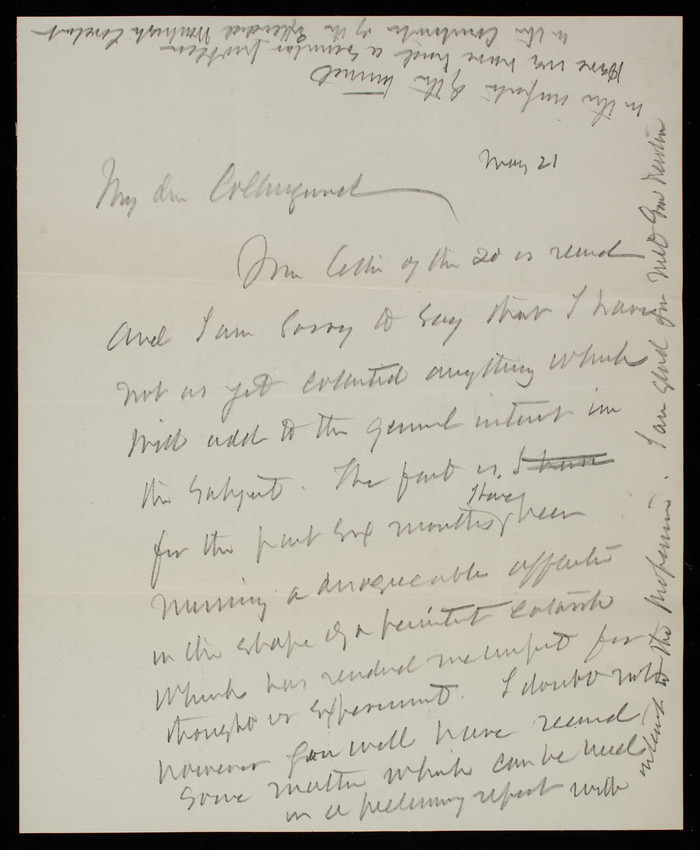 May 21
My dear Collingwood
Your letter of the 20 is recvd
and I am sorry to say that I have
not as yet collected anything which
will add to the general interest in
the subject. The fact is, I have
for the past six months have been
nursing a disagreeable affection
in the shape of a persistent catarrh
which has rendered me unfit for
thought or experiment. I doubt not
however you will have received
some matter which can be used
in a preliminary report with
interest to the profession. I am glad you met Gen Newton
in the
of the tunnel
Here we have had a similar problem
in the Construction of the Splendid